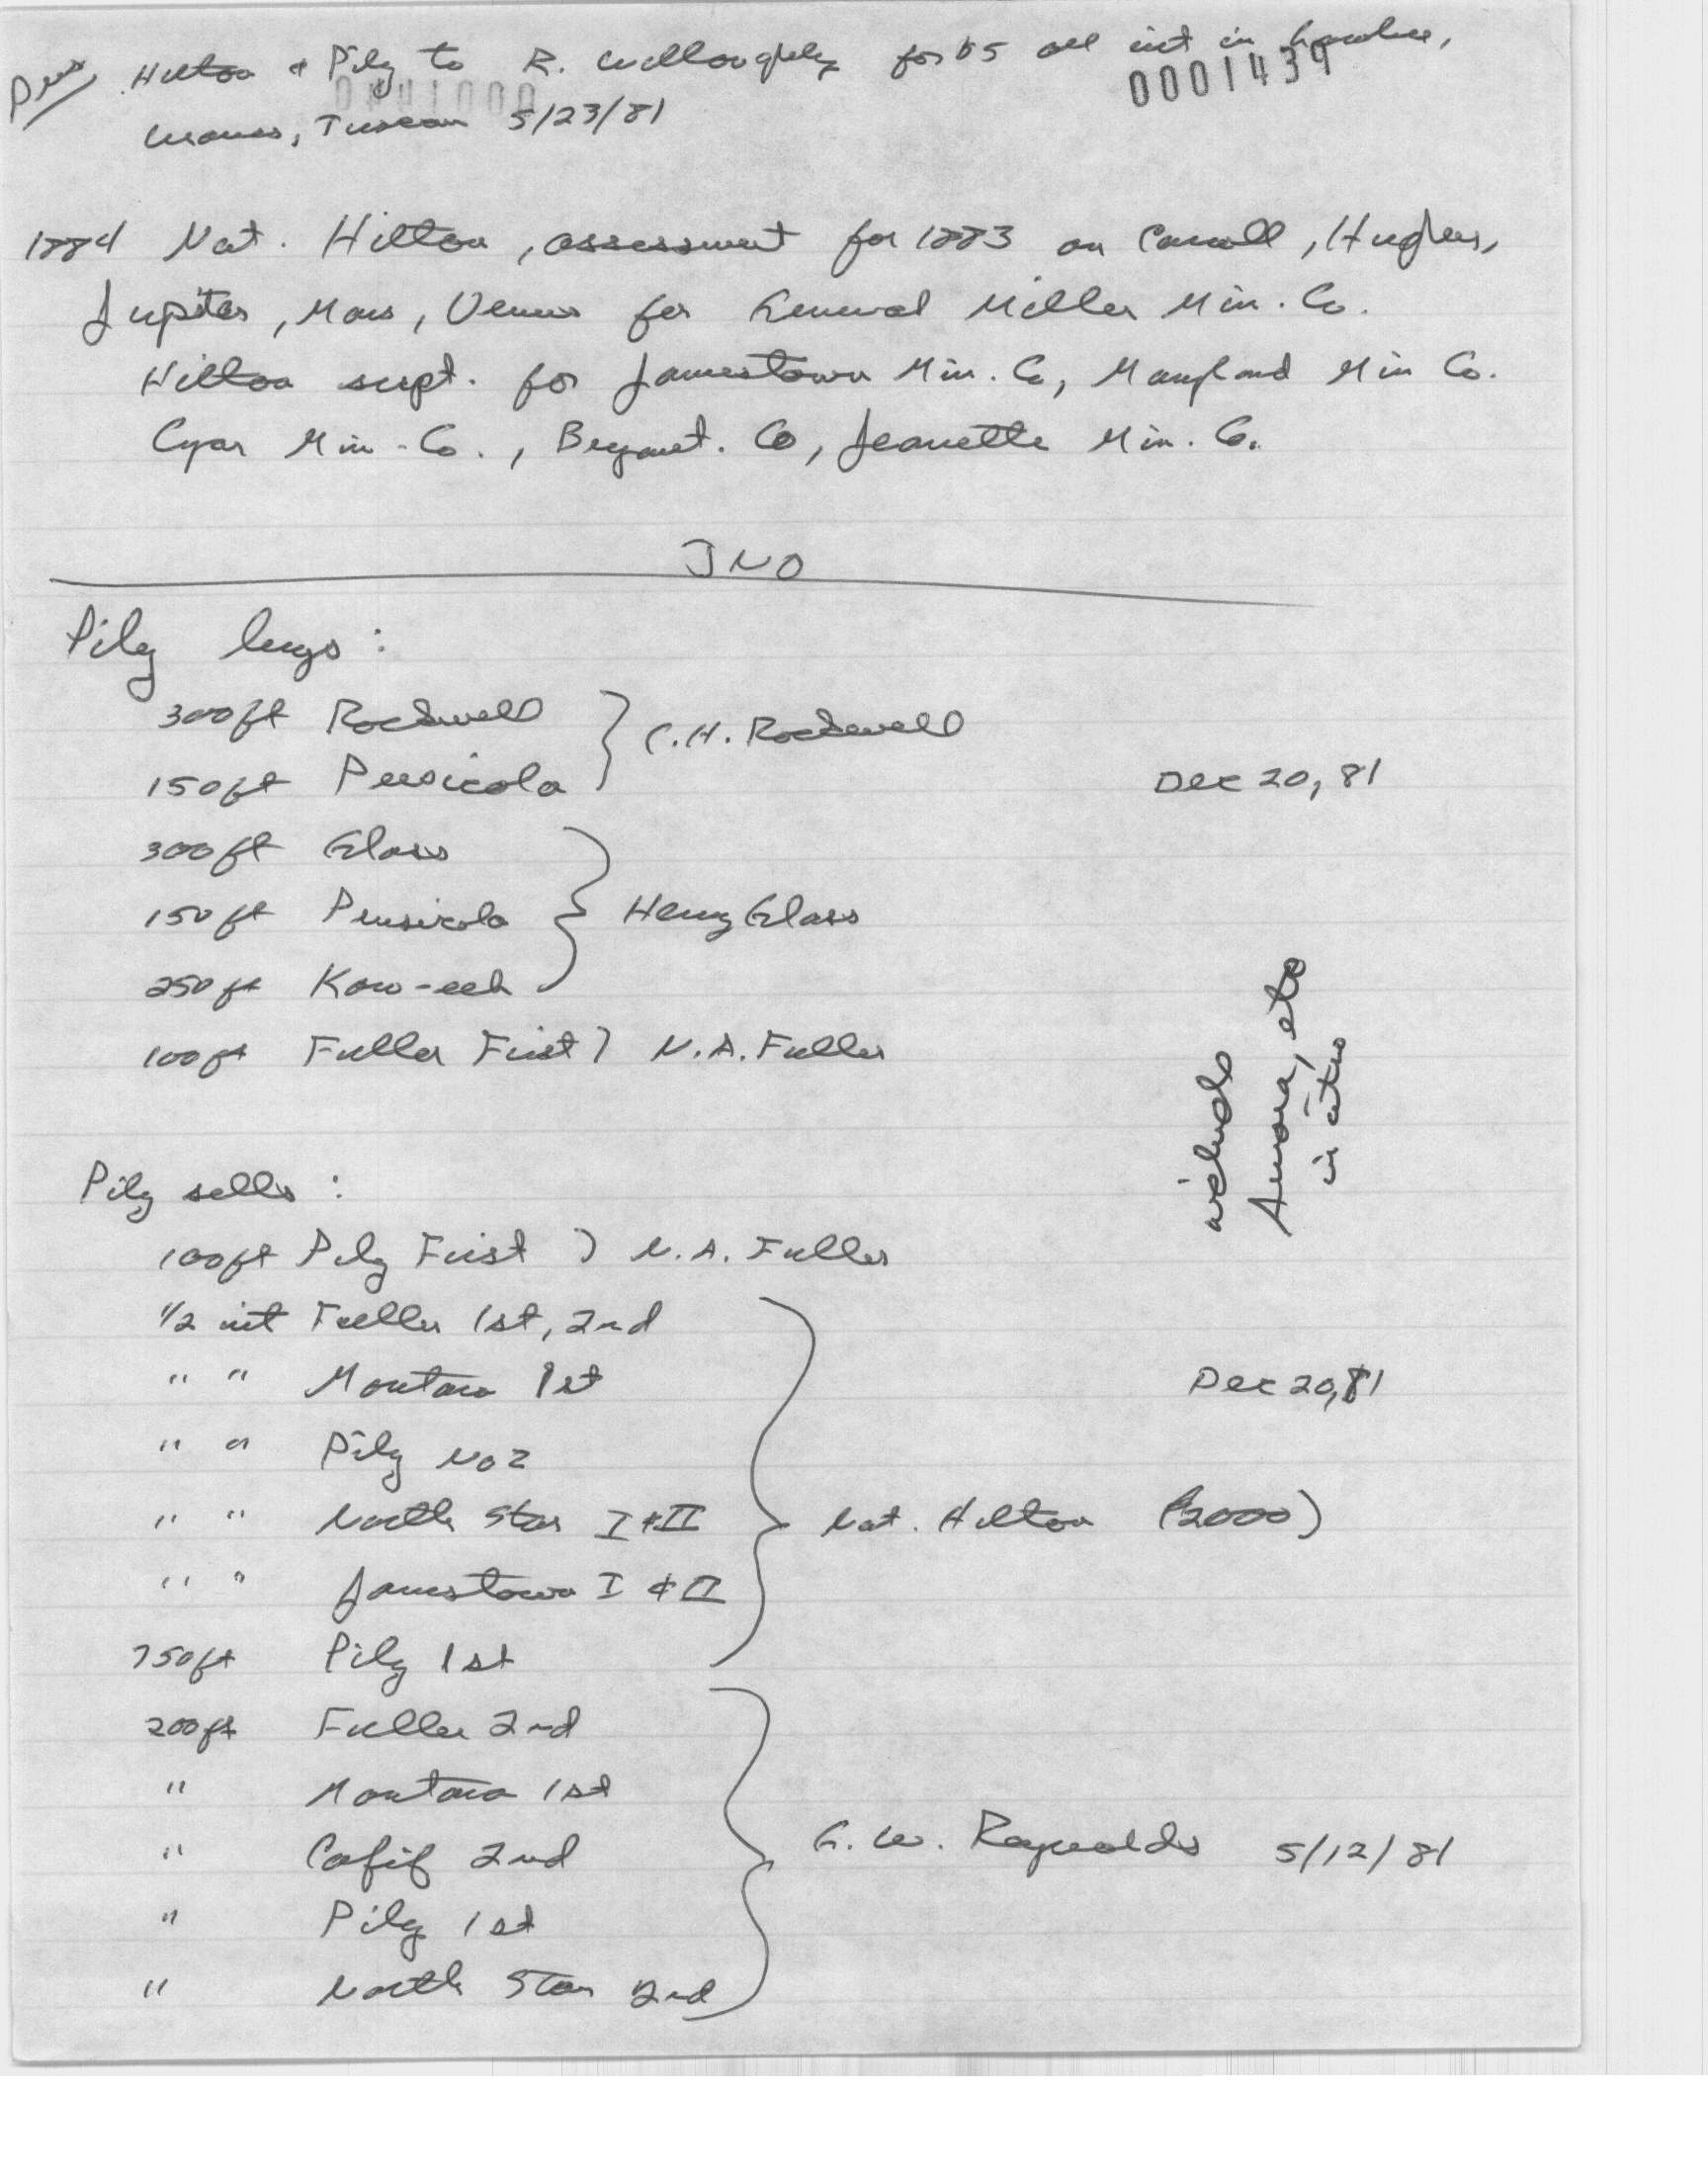 Hilton & Pilz to R. Willoughby for $5 all int in
0001439
Tuscan 5/23/81
1884 Nat. Hilton, assessment for 1883 on Carroll, Hughes,
Jupiter, Mars, Venus for General Miller Min. Co.
Hilton supt. for Jamestown Min. Co, Maryland Min Co.
Min. Co., Co, Jeanette Min. Co.
JNO
Pilz buys:
300ft Rockwell } C.H. Rockwell
150ft Pensicola
Dec 20, 81
300ft Glass
150ft Pensicola } Henry Glass
250ft Kow-eeh
100ft Fuller First } N.A. Fuller
include
Aurora, etc
in
Pilz sells:
100ft Pilz First } N.A. Fuller
1/2 int Fuller 1st, 2nd
" " Montana 1st
Dec 20, 81
" " Pilz No 2
" " North Star I & II } Nat. Hilton ($2000)
" " Jamestown I & II
750ft Pilz 1st
200ft Fuller 2nd
" Montana 1st
" Calif 2nd } G.W. Raynolds 5/12/81
" Pilz 1st
" North Star 2nd